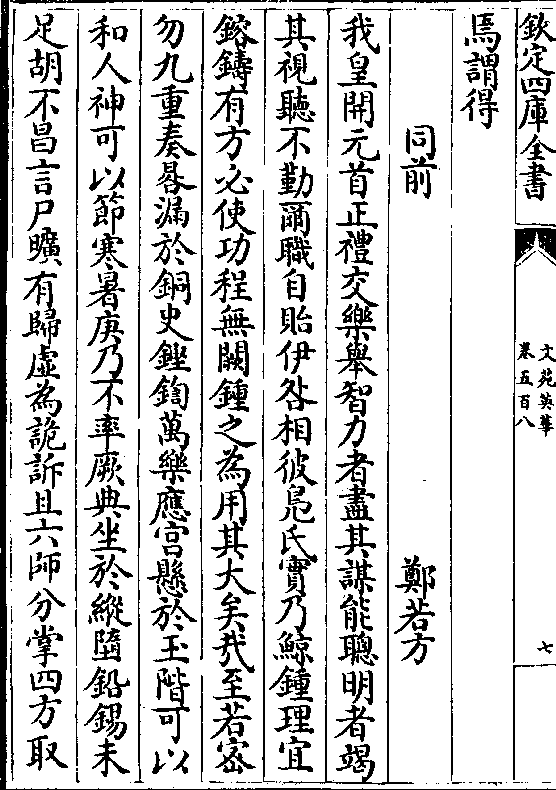 欽定四庫全書
文苑英華
卷五百八
七
焉謂得
同前
鄭若方
我皇開元首正禮交樂舉智力者盡其謀能聰明者竭
其視聽不勤爾職自貽伊咎相彼鳬氏實乃鯨鍾理宜
鎔鑄有方必使功程無闕鍾之為用其大矣哉至若宻
勿九重奏晷漏於銅史鏗鍧萬樂應宫懸於玉階可以
和人神可以節寒暑庚乃不率厥典坐於縱隳鉛錫未
足胡不昌言尸曠有歸虚為詭訴且六師分掌四方取